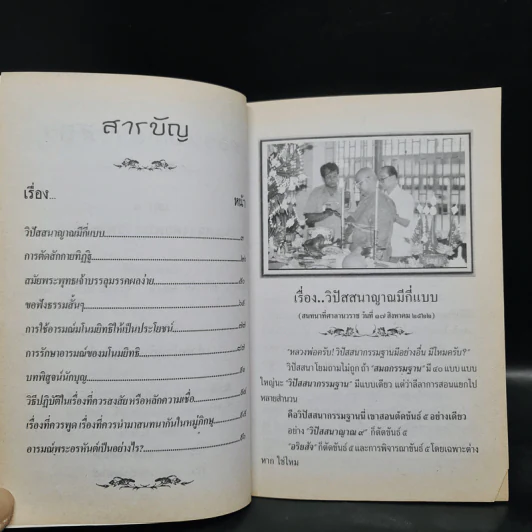 สารบัญ
เรื่อง...
หน้า
วิปัสสนาญาณมีกี่แบบ
การตัดสักกายทิฏฐิ
สมัยพระพุทธเจ้าบรรลุมรรคผลง่าย
ขอฟังธรรมสั้นๆ
การใช้อารมณ์มโนมยิทธิให้เป็นประโยชน์
การรักษาอารมณ์ของมโนมยิทธิ
บทพิสูจน์นักบุญ
วิธีปฏิบัติในเรื่องที่ควรสงสัยหรือหลักความเชื่อ
เรื่องที่ควรพูด เรื่องที่ควรนำมาสนทนากันในหมู่ภิกษุ
อารมณ์พระอรหันต์เป็นอย่างไร?
เรื่อง..วิปัสสนาญาณมีกี่แบบ
(สนทนาที่ศาลานวราช วันที่ ๑๗ สิงหาคม ๒๕๒๒)
"หลวงพ่อครับ! วิปัสสนากรรมฐานมีอย่างอื่น มีไหมครับ?"
วิปัสสนาโยมถามไม่ถูก ถ้า "สมถกรรมฐาน" มี ๔๐ แบบ แบบ
ใหญ่นะ "วิปัสสนากรรมฐาน" มีแบบเดียว แต่ว่าลีลาการสอนแยกไป
หลายสำนวน
คือวิปัสสนากรรมฐานนี่ เขาสอนตัดขันธ์ ๕ อย่างเดียว
อย่าง "วิปัสสนาญาณ ๙" ก็ตัดขันธ์ ๕
"อริยสัจ" ก็ตัดขันธ์ ๕ และการพิจารณาขันธ์ ๕ โดยเฉพาะต่าง
หาก ใช่ไหม